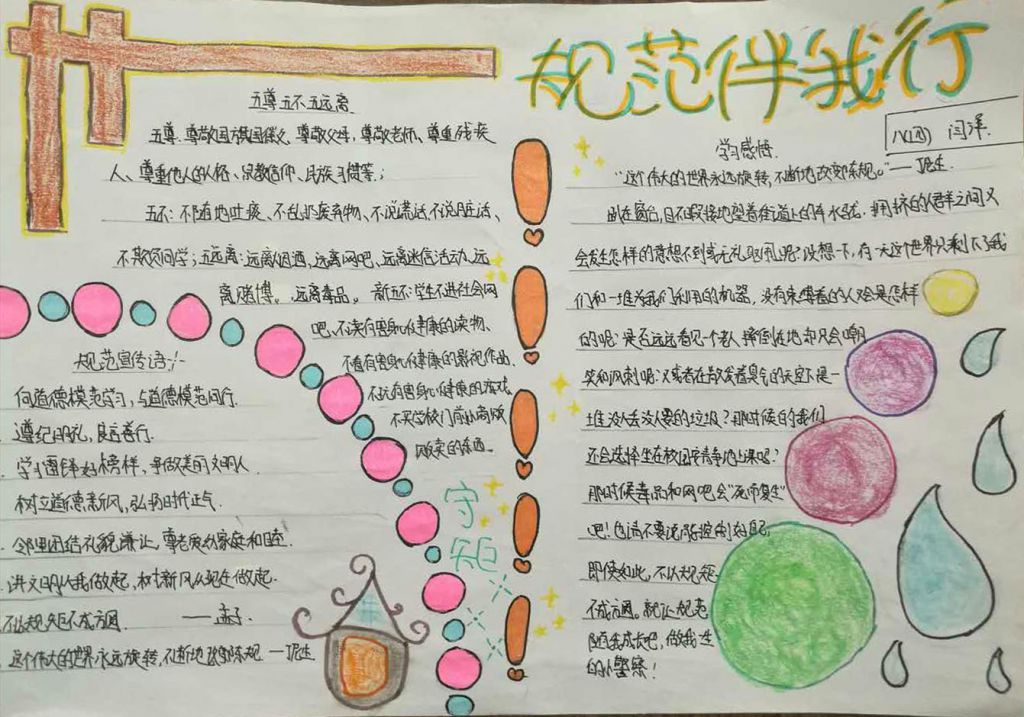 规范伴我行
八(四) 闫洋.
五尊五不五远离
五尊:尊敬国旗国徽义,尊敬父母,尊敬老师、尊重残疾
人、尊重他人的人格、宗教信仰、民族习惯等;
五不:不随地吐痰、不乱扔废弃物、不说谎话不说脏话、
不欺负同学;五远离:远离烟酒、远离网吧、远离迷信活动、远
离赌博。远离毒品。新五不:学生不进社会网
吧、不读有害身心健康的读物、
不看有害身心健康的影视作品
不玩有害身心健康的游戏
不买学校门前小商贩
贩卖的东西.
规范宣传语:
向道德模范学习,与道德模范同行.
遵纪明礼,良言善行.
学习雷锋好榜样,争做美丽文明人
树立道德新风,弘扬时代正气
邻里团结礼貌谦让,尊老爱幼家庭和睦.
讲文明从我做起,树新风从现在做起.
不以规矩不成方圆. ——孟子.
这个伟大的世界永远旋转,不断地改变陈规.—丁尼生
守
矩
学习感悟.
"这个伟大的世界永远旋转,不断地改变陈规。"—丁尼生.
趴在窗台,目不暇接地望着街道上的车水马龙.拥挤的人群之间又
会发生怎样的意想不到或无礼取闹呢?设想一下,有一天这个世界只剩下了我
们和一堆为我们利用的机器,没有束缚着的人又会是怎样
的呢?是否远远看见一个老人摔倒在地却只会嘲
笑和讽刺呢?又或者在散发着臭气的天空下是一
堆没人去没人要的垃圾?那时候的我们
还会选择坐在校园安静地上课呢?
那时候毒品和网吧会"死而复生"
吧!也请不要说你控制好自己
即使如此,不以规矩
不成方圆。就让规范
随我成长吧,做我一生
的小警察!